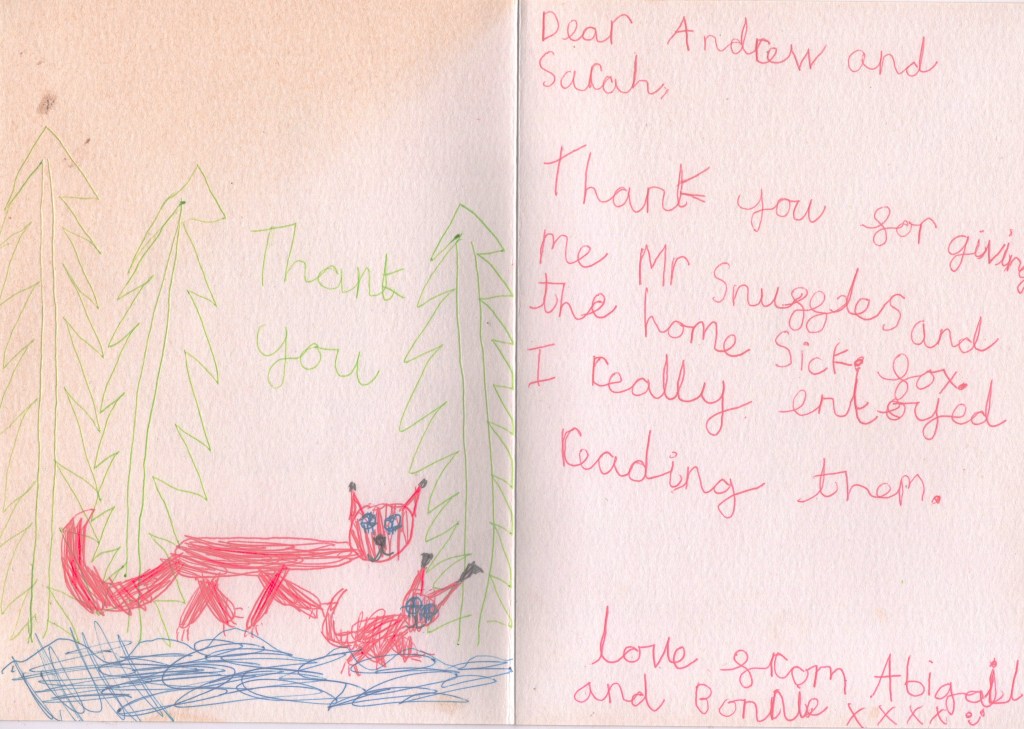 Thank
you
Dear Andrew and
Sarah,
Thank you for giving
me Mr Snuggles and
the home sick fox.
I really enjoyed
reading them.
love from Abigail
and Bonnie xxxx